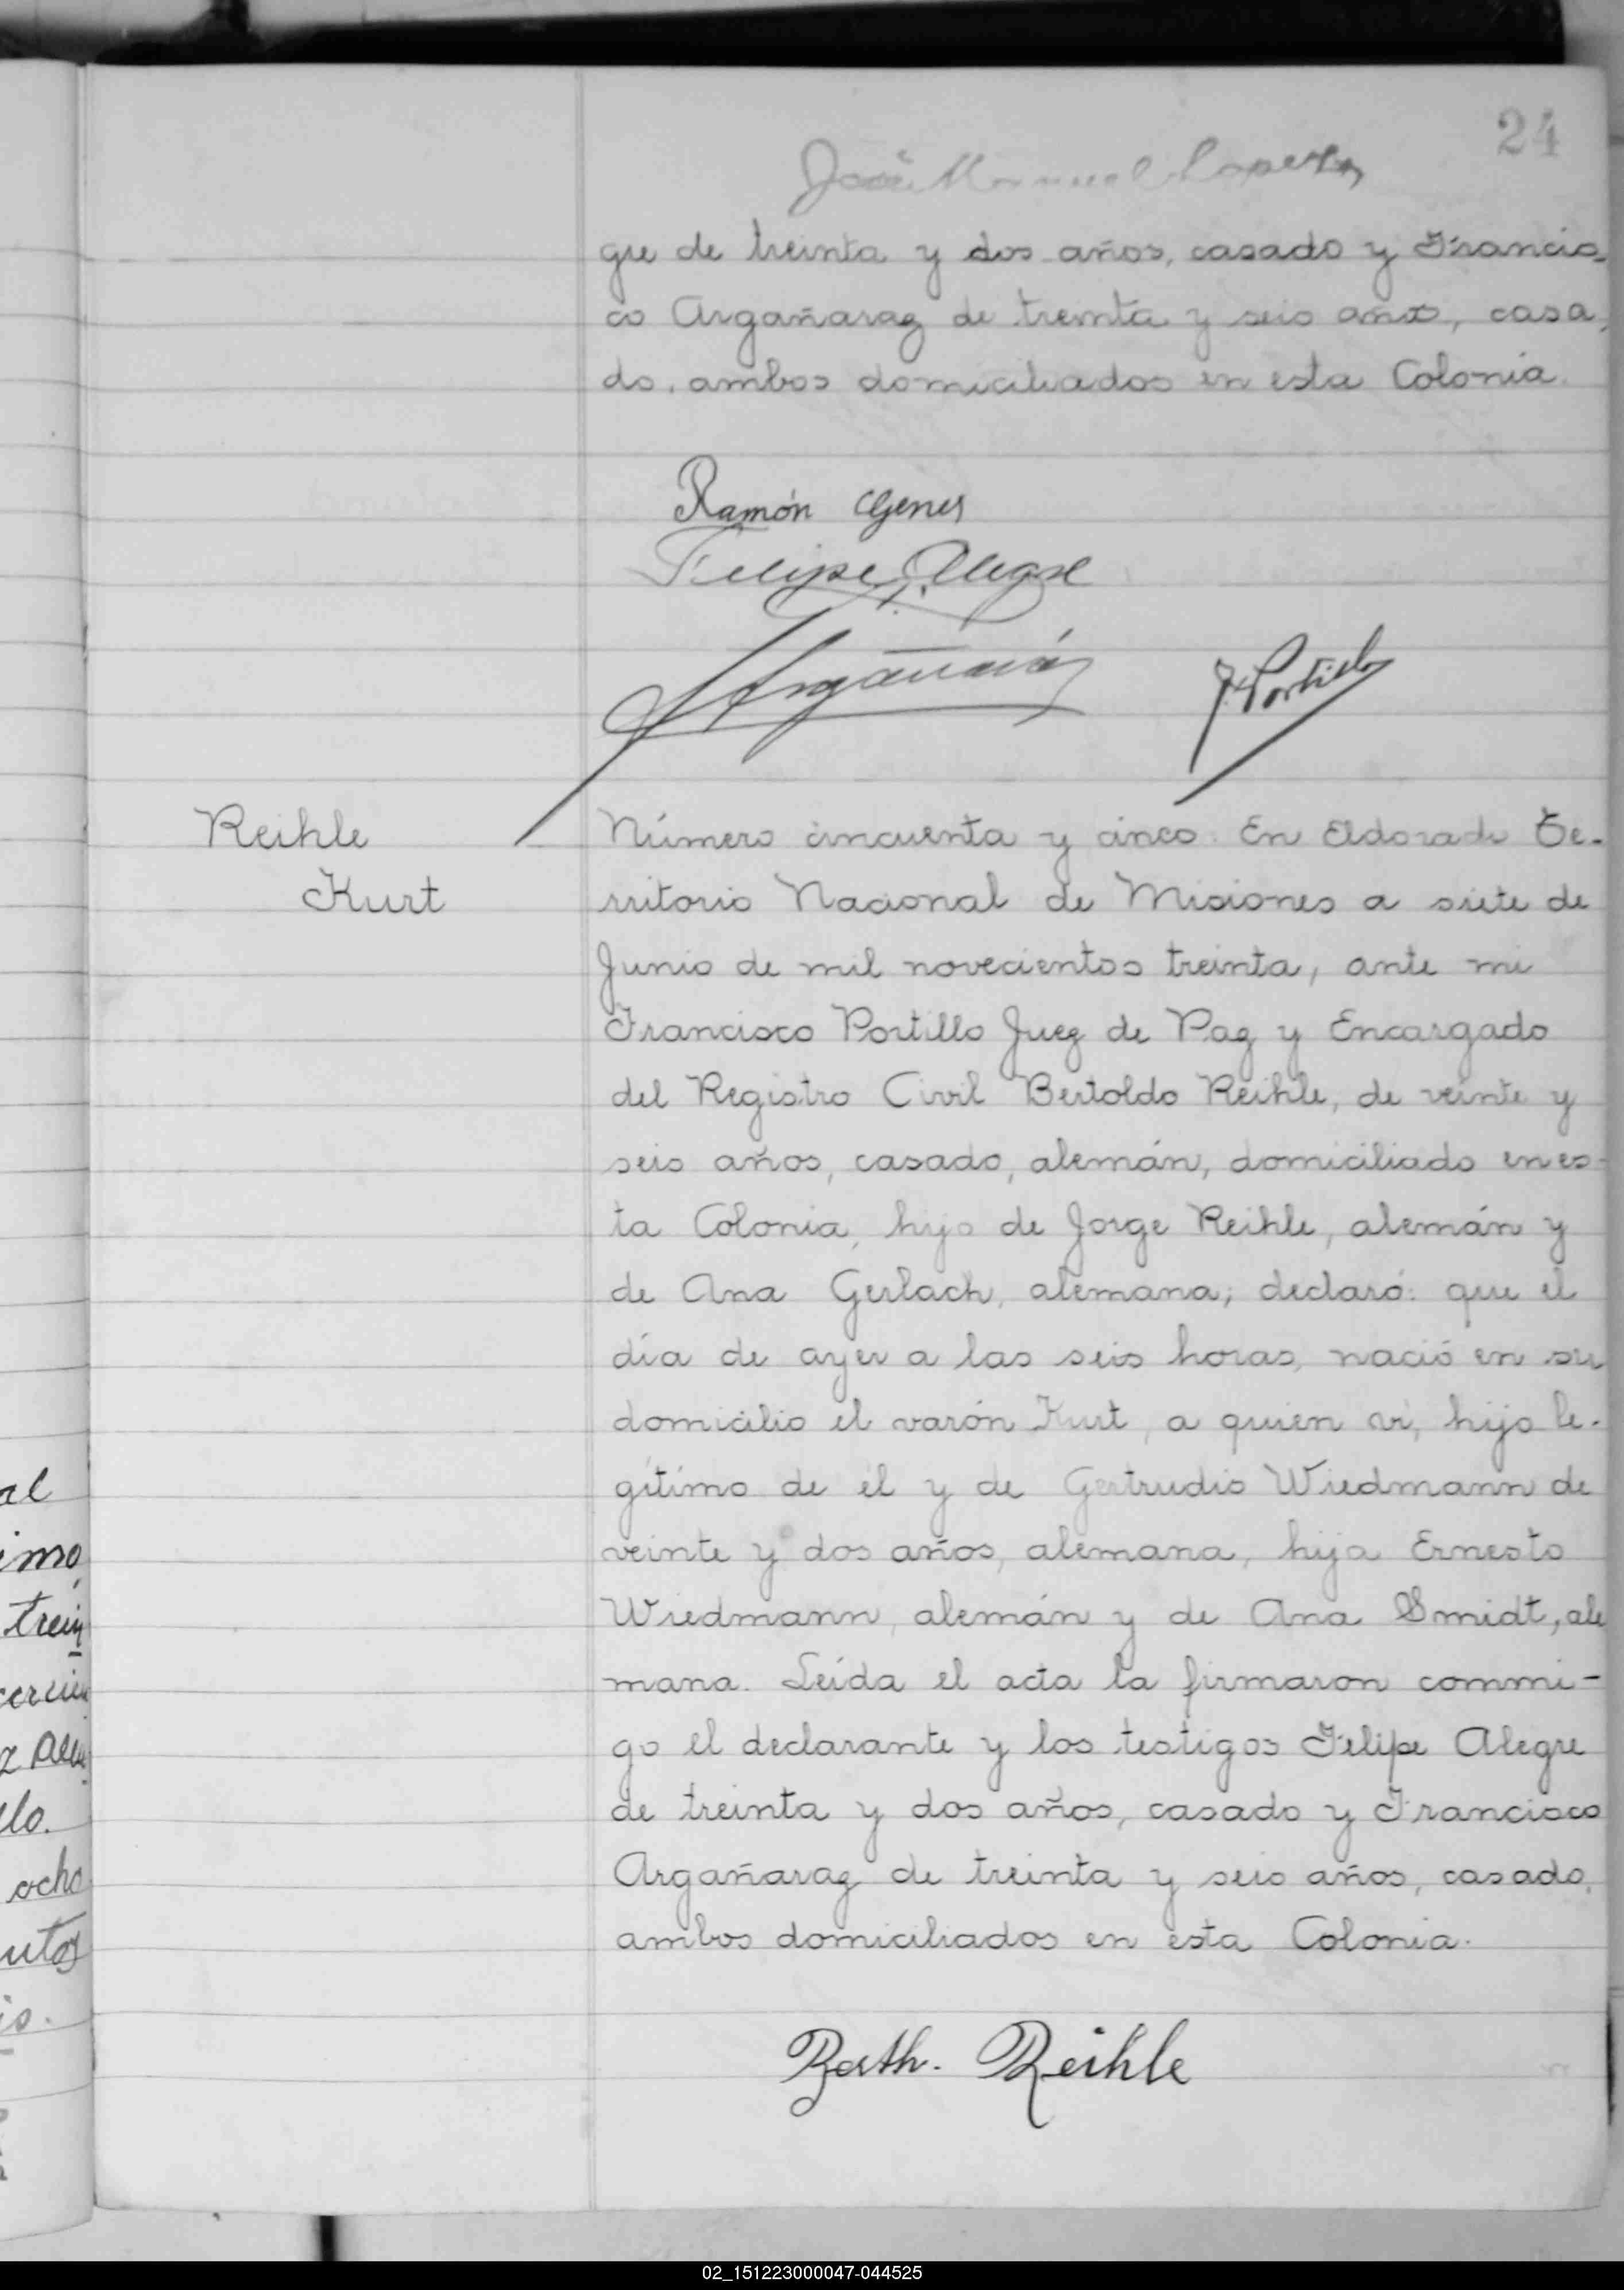 24
José Manuel Lopez
gre de treinta y dos años, casado y Francis-
co Argañaraz de treinta y seis años, casa-
do, ambos domiciliados en esta Colonia.
Ramón Genes
Felipe Alegre
Argañaráz
F. Portillo
Reihle
Kurt
Número cincuenta y cinco. En Eldorado Te-
rritorio Nacional de Misiones a siete de
Junio de mil novecientos treinta, ante mi
Francisco Portillo Juez de Paz y Encargado
del Registro Civil Bertoldo Reihle, de veinte y
seis años, casado, alemán, domiciliado en es-
ta Colonia, hijo de Jorge Reihle, alemán y
de Ana Gerlach, alemana; declaró: que el
día de ayer a las seis horas, nació en su
domicilio el varón Kurt, a quien vi, hijo le-
gítimo de él y de Gertrudis Wiedmann de
veinte y dos años, alemana, hija Ernesto
Wiedmann, alemán y de Ana Smidt, ale
mana. Leída el acta la firmaron commi-
go el declarante y los testigos Felipe Alegre
de treinta y dos años, casado y Francisco
Argañaraz de treinta y seis años, casado,
ambos domiciliados en esta Colonia.
Berth. Reihle
al
imo
trein
lo.
ocho
utos
is.
02_151223000047-044525